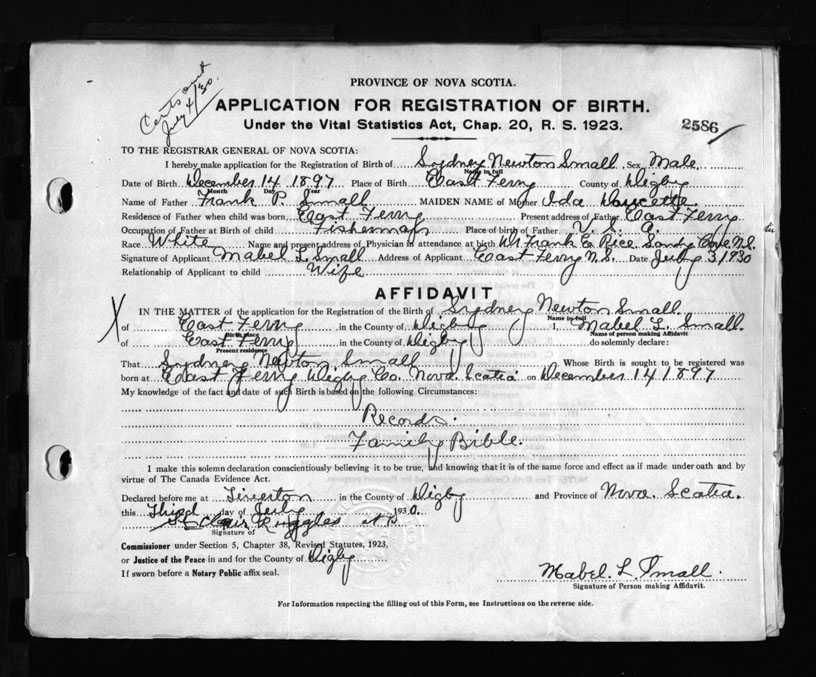 Cert sent
July 4/30.
PROVINCE OF NOVA SCOTIA.
APPLICATION FOR REGISTRATION OF BIRTH.
Under the Vital Statistics Act, Chap. 20, R. S. 1923.
2586
TO THE REGISTRAR GENERAL OF NOVA SCOTIA:
I hereby make application for the Registration of Birth of Sydney Newton Small Sex Male
Name in full
Date of Birth December 14 1897 Place of Birth East Ferry County of Digby
Month Day Year
Name of Father Frank P. Small MAIDEN NAME of Mother Ida Doucette
Residence of Father when child was born East Ferry Present address of Father East Ferry
Occupation of Father at Birth of child Fisherman Place of birth of Father U. S. A.
Race White Name and present address of Physician in attendance at birth Frank E. Rice Sandy Cove N.S.
Signature of Applicant Mabel L. Small Address of Applicant East Ferry N.S. Date July 3 1930
Relationship of Applicant to child Wife
AFFIDAVIT
X
IN THE MATTER of the application for the Registration of the Birth of Sydney Newton Small.
Name in full
of East Ferry in the County of Digby I, Mabel L. Small.
Birth place Name of person making Affidavit
of East Ferry in the County of Digby do solemnly declare:
Present residence
That Sydney Newton Small Whose Birth is sought to be registered was
born at East Ferry Digby Co. Nova Scotia on December 14 1897
My knowledge of the fact and date of such Birth is based on the following Circumstances:
Records.
Family Bible.
I make this solemn declaration conscientiously believing it to be true, and knowing that it is of the same force and effect as if made under oath and by
virtue of The Canada Evidence Act.
Declared before me at Tiverton in the County of Digby and Province of Nova. Scotia.
this Third day of July 1930.
Ruggles
Signature of
Commissioner under Section 5, Chapter 38, Revised Statutes, 1923,
or Justice of the Peace in and for the County of Digby
If sworn before a Notary Public affix seal.
Mabel. L. Small.
Signature of Person making Affidavit.
For Information respecting the filling out of this Form, see Instructions on the reverse side.